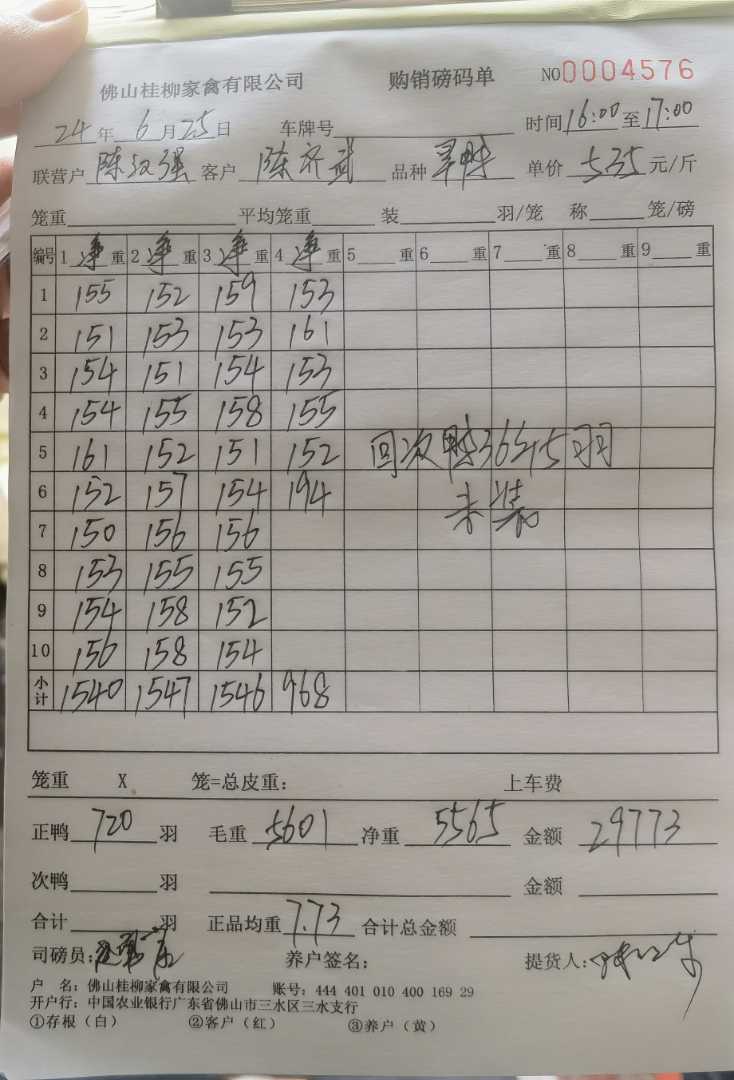 佛山桂柳家禽有限公司 购销磅码单 NO0004576
24年6月25日 车牌号 时间16:00至17:00
联营户陈汉强 客户陈齐武 品种 单价5.35元/斤
笼重 平均笼重 装 羽/笼 称 笼/磅
编号 1净重 2净重 3净重 4净重 5重 6重 7重 8重 9重
1 155 152 159 153
2 151 153 153 161
3 154 151 154 153
4 154 155 158 155
5 161 152 151 152 回次鸭36斤5羽
6 152 157 154 194 未装
7 150 156 156
8 153 155 155
9 154 158 152
10 156 158 154
小计 1540 1547 1546 968
笼重 X 笼=总皮重: 上车费
正鸭720羽 毛重5601 净重5565 金额29773
次鸭 羽 金额
合计 羽 正品均重7.73 合计总金额
司磅员: 养户签名: 提货人:
户 名: 佛山桂柳家禽有限公司 账号: 444 401 010 400 169 29
开户行: 中国农业银行广东省佛山市三水区三水支行
①存根(白) ②客户(红) ③养户(黄)